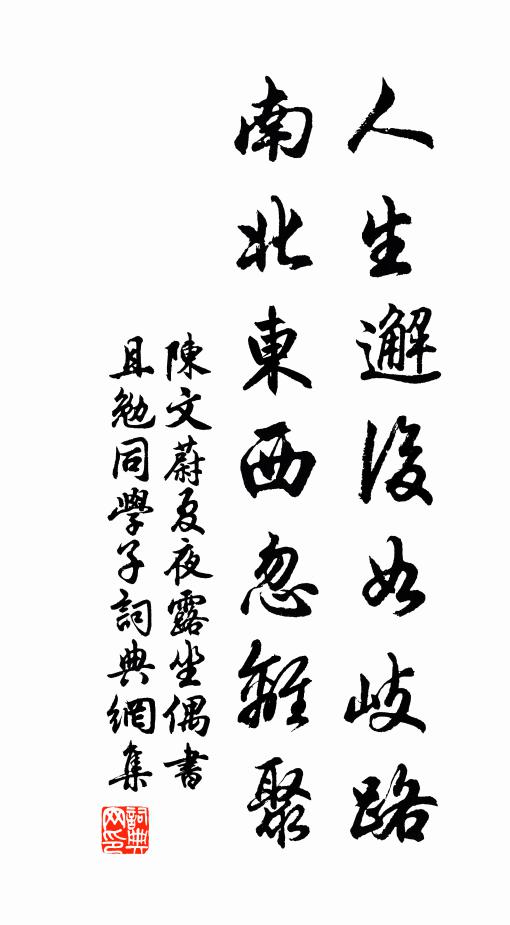 人生邂後如岐路
南北東西忽離聚
陳文蔚夏夜露坐偶書
且勉同學子詞典網集
詞典网印